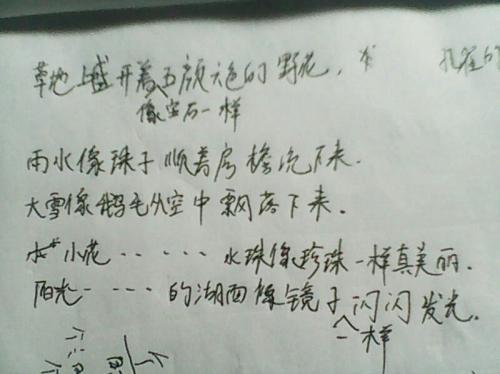 草地上盛开着五颜六色的野花，
像宝石一样
雨水像珠子顺着房檐流下来.
大雪像鹅毛从空中飘落下来.
小花····· 水珠像珍珠一样真美丽.
阳光····的湖面像镜子闪闪发光.
一样